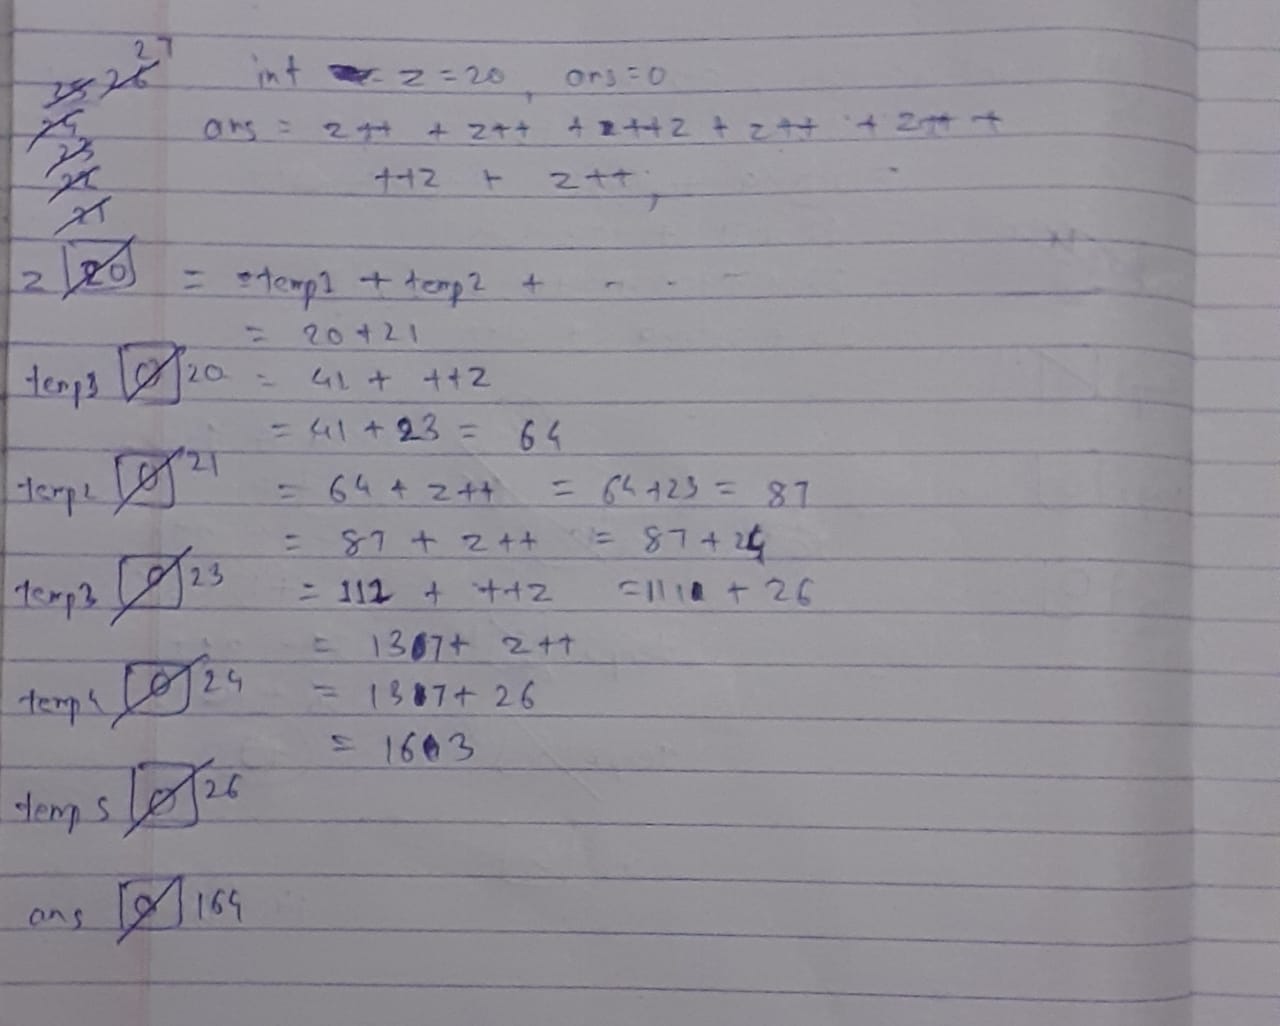 27
25 26 int z = 20, ans = 0
24 ans = z++ + z++ + ++z + z++ + z++ +
23
22 ++z + z++;
21
z 20 = temp1 + temp2 + - - -
= 20 + 21
temp1 0 20 = 41 + ++z
= 41 + 23 = 64
temp2 0 21 = 64 + z++ = 64 + 23 = 87
= 87 + z++ = 87 + 24
temp3 0 23 = 111 + ++z = 111 + 26
= 137 + z++
temp4 0 24 = 137 + 26
= 163
temp5 0 26
ans 0 164